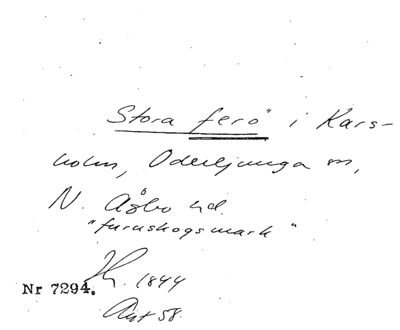 Stora ferö" i Kars-
holm, Oderljunga sn,
N. Åsbo hd.
"furuskogsmark"
1844
Nr 7294.
Ant 58.